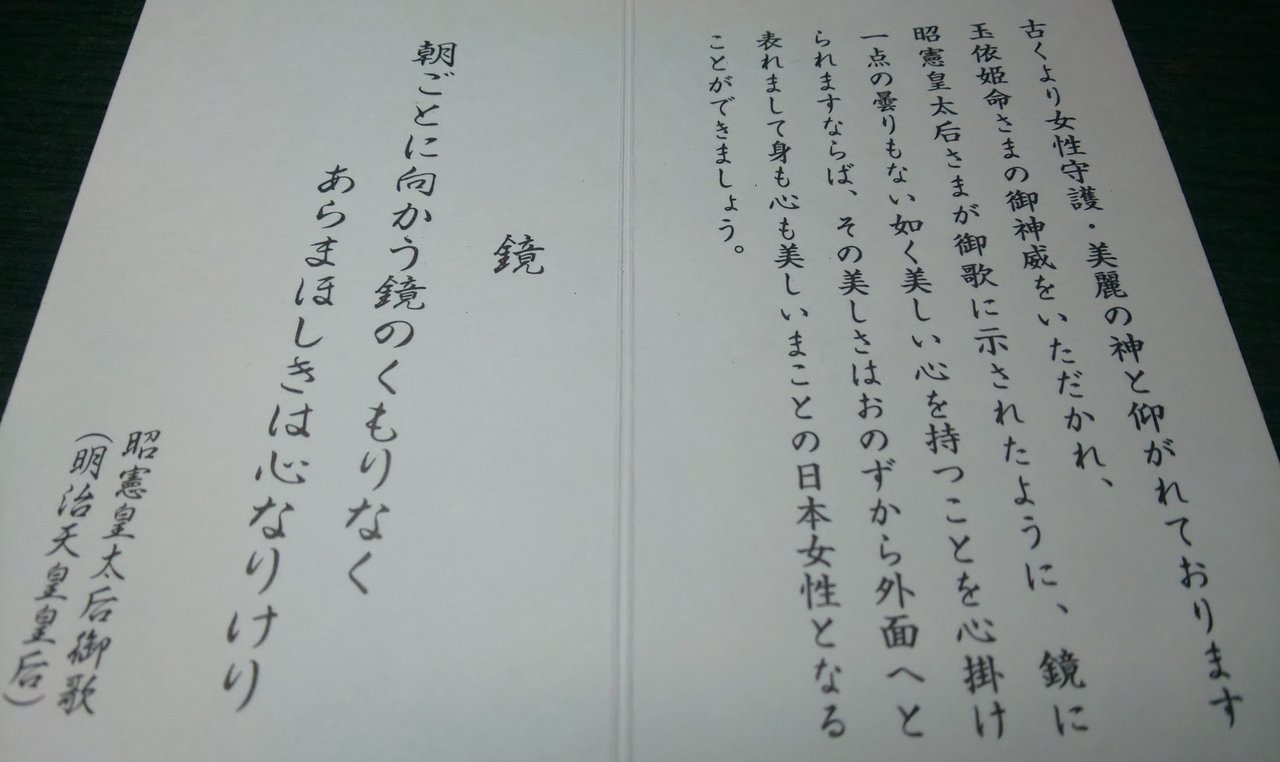 古くより女性守護・美麗の神と仰がれております
玉依姫命さまの御神威をいただかれ、
昭憲皇太后さまが御歌に示されたように、鏡に
一点の曇りもない如く美しい心を持つことを心掛け
られますならば、その美しさはおのずから外面へと
表れまして身も心も美しいまことの日本女性となる
ことができましょう。
鏡
朝ごとに向かう鏡のくもりなく
あらまほしきは心なりけり
昭憲皇太后御歌
（明治天皇皇后）